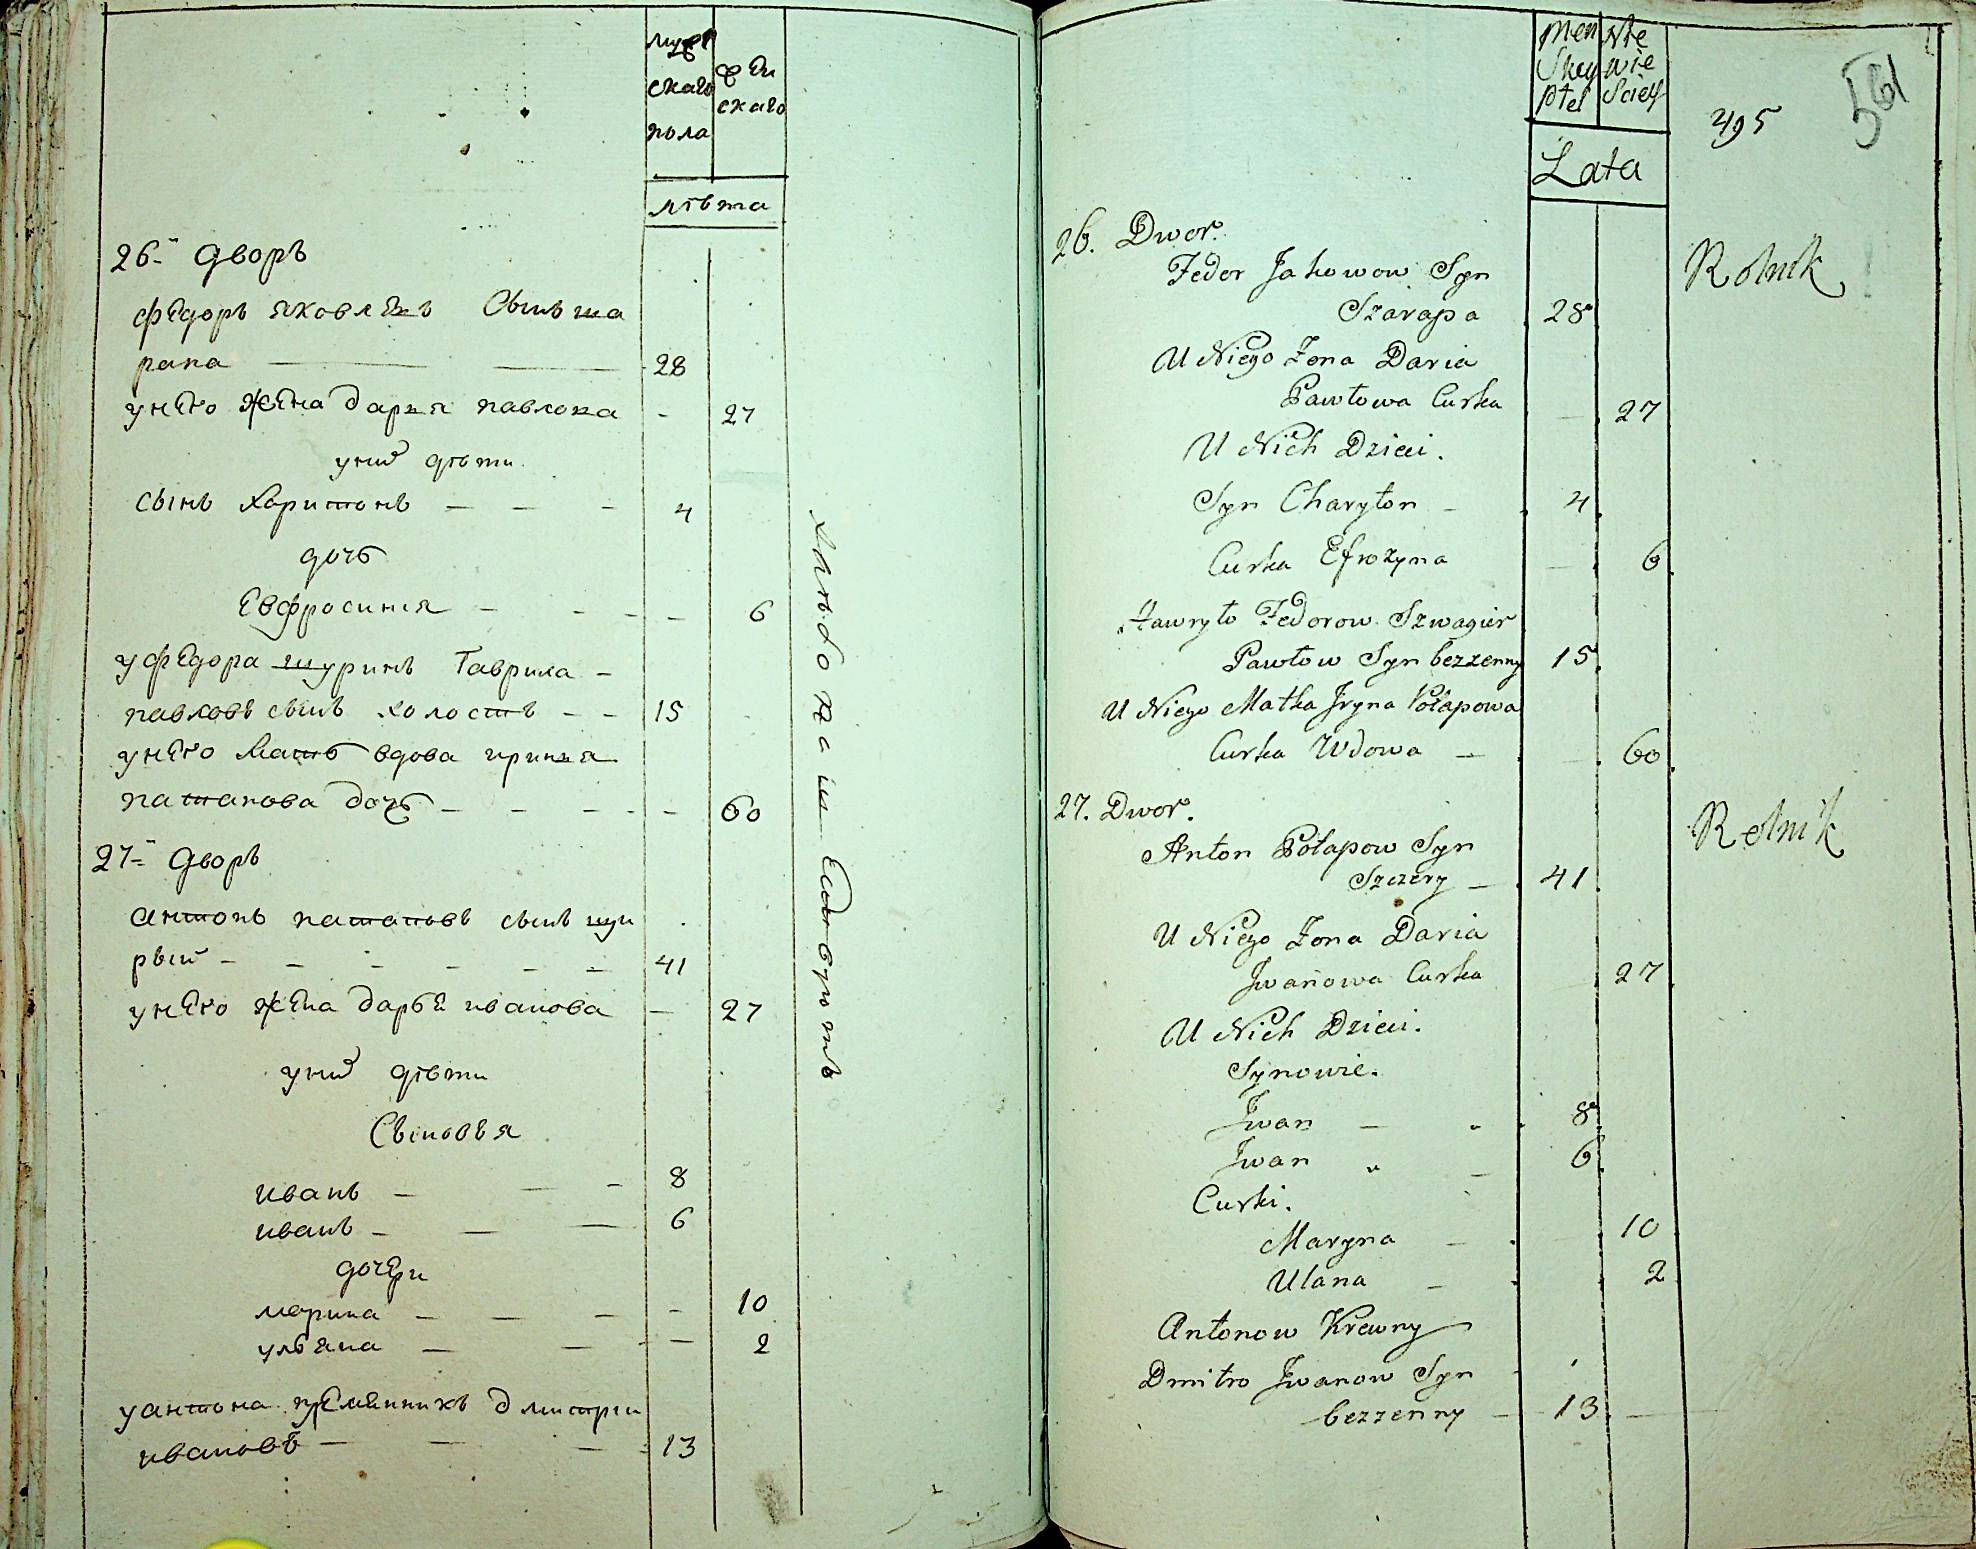 мужескаго пола
женскаго
лѣта
26й дворъ
федоръ яковлевъ сынъ ша
рапа 28
унего жена даръя павлова - 27
уних дѣти
сынъ харитонъ - - - 4
дочь
Евфросиния - - - - 6
уфедора шуринъ Гаврила -
павловъ сынъ холостъ - - 15
унего мать вдова иринъя
патапова дочь - - - - - 60
27й дворъ
антонъ патаповъ сынъ щи
рый - - - - - - 41
унего жена дарье иванова - 27
уних дѣти
Сыновья
иванъ - - - 8
иванъ - - - 6
дочери
марина - - - - 10
ульяна - - - 2
уантона племянникъ дмитри
ивановъ - - - 13
хлѣбопашествуютъ
Men
Skey
Płci
Nie
wie
Sciey
Lata
495
561
26. Dwor.
Fedor Jakowow Syn
Szarapa 28
Rolnik
U Niego Żona Daria
Pawłowa Curka 27
U Nich Dzieci.
Syn Charyton - 4
Curka Efrozyna 6
Hawryło Fedorow Szwagier
Pawłow Syn bezzenny 15
U Niego Matka Jryna Połapowa
Curka Wdowa - 60
27. Dwor.
Anton Połapow Syn
Szczery - 41
Rolnik
U Niego Żona Daria
Jwanowa Curka 27
U Nich Dzieci.
Synowie.
Jwan - 8
Jwan „ - 6
Curki.
Maryna - 10
Ulana - 2
Antonow Krewny
Dmitro Jwanow Syn
bezzenny - 13